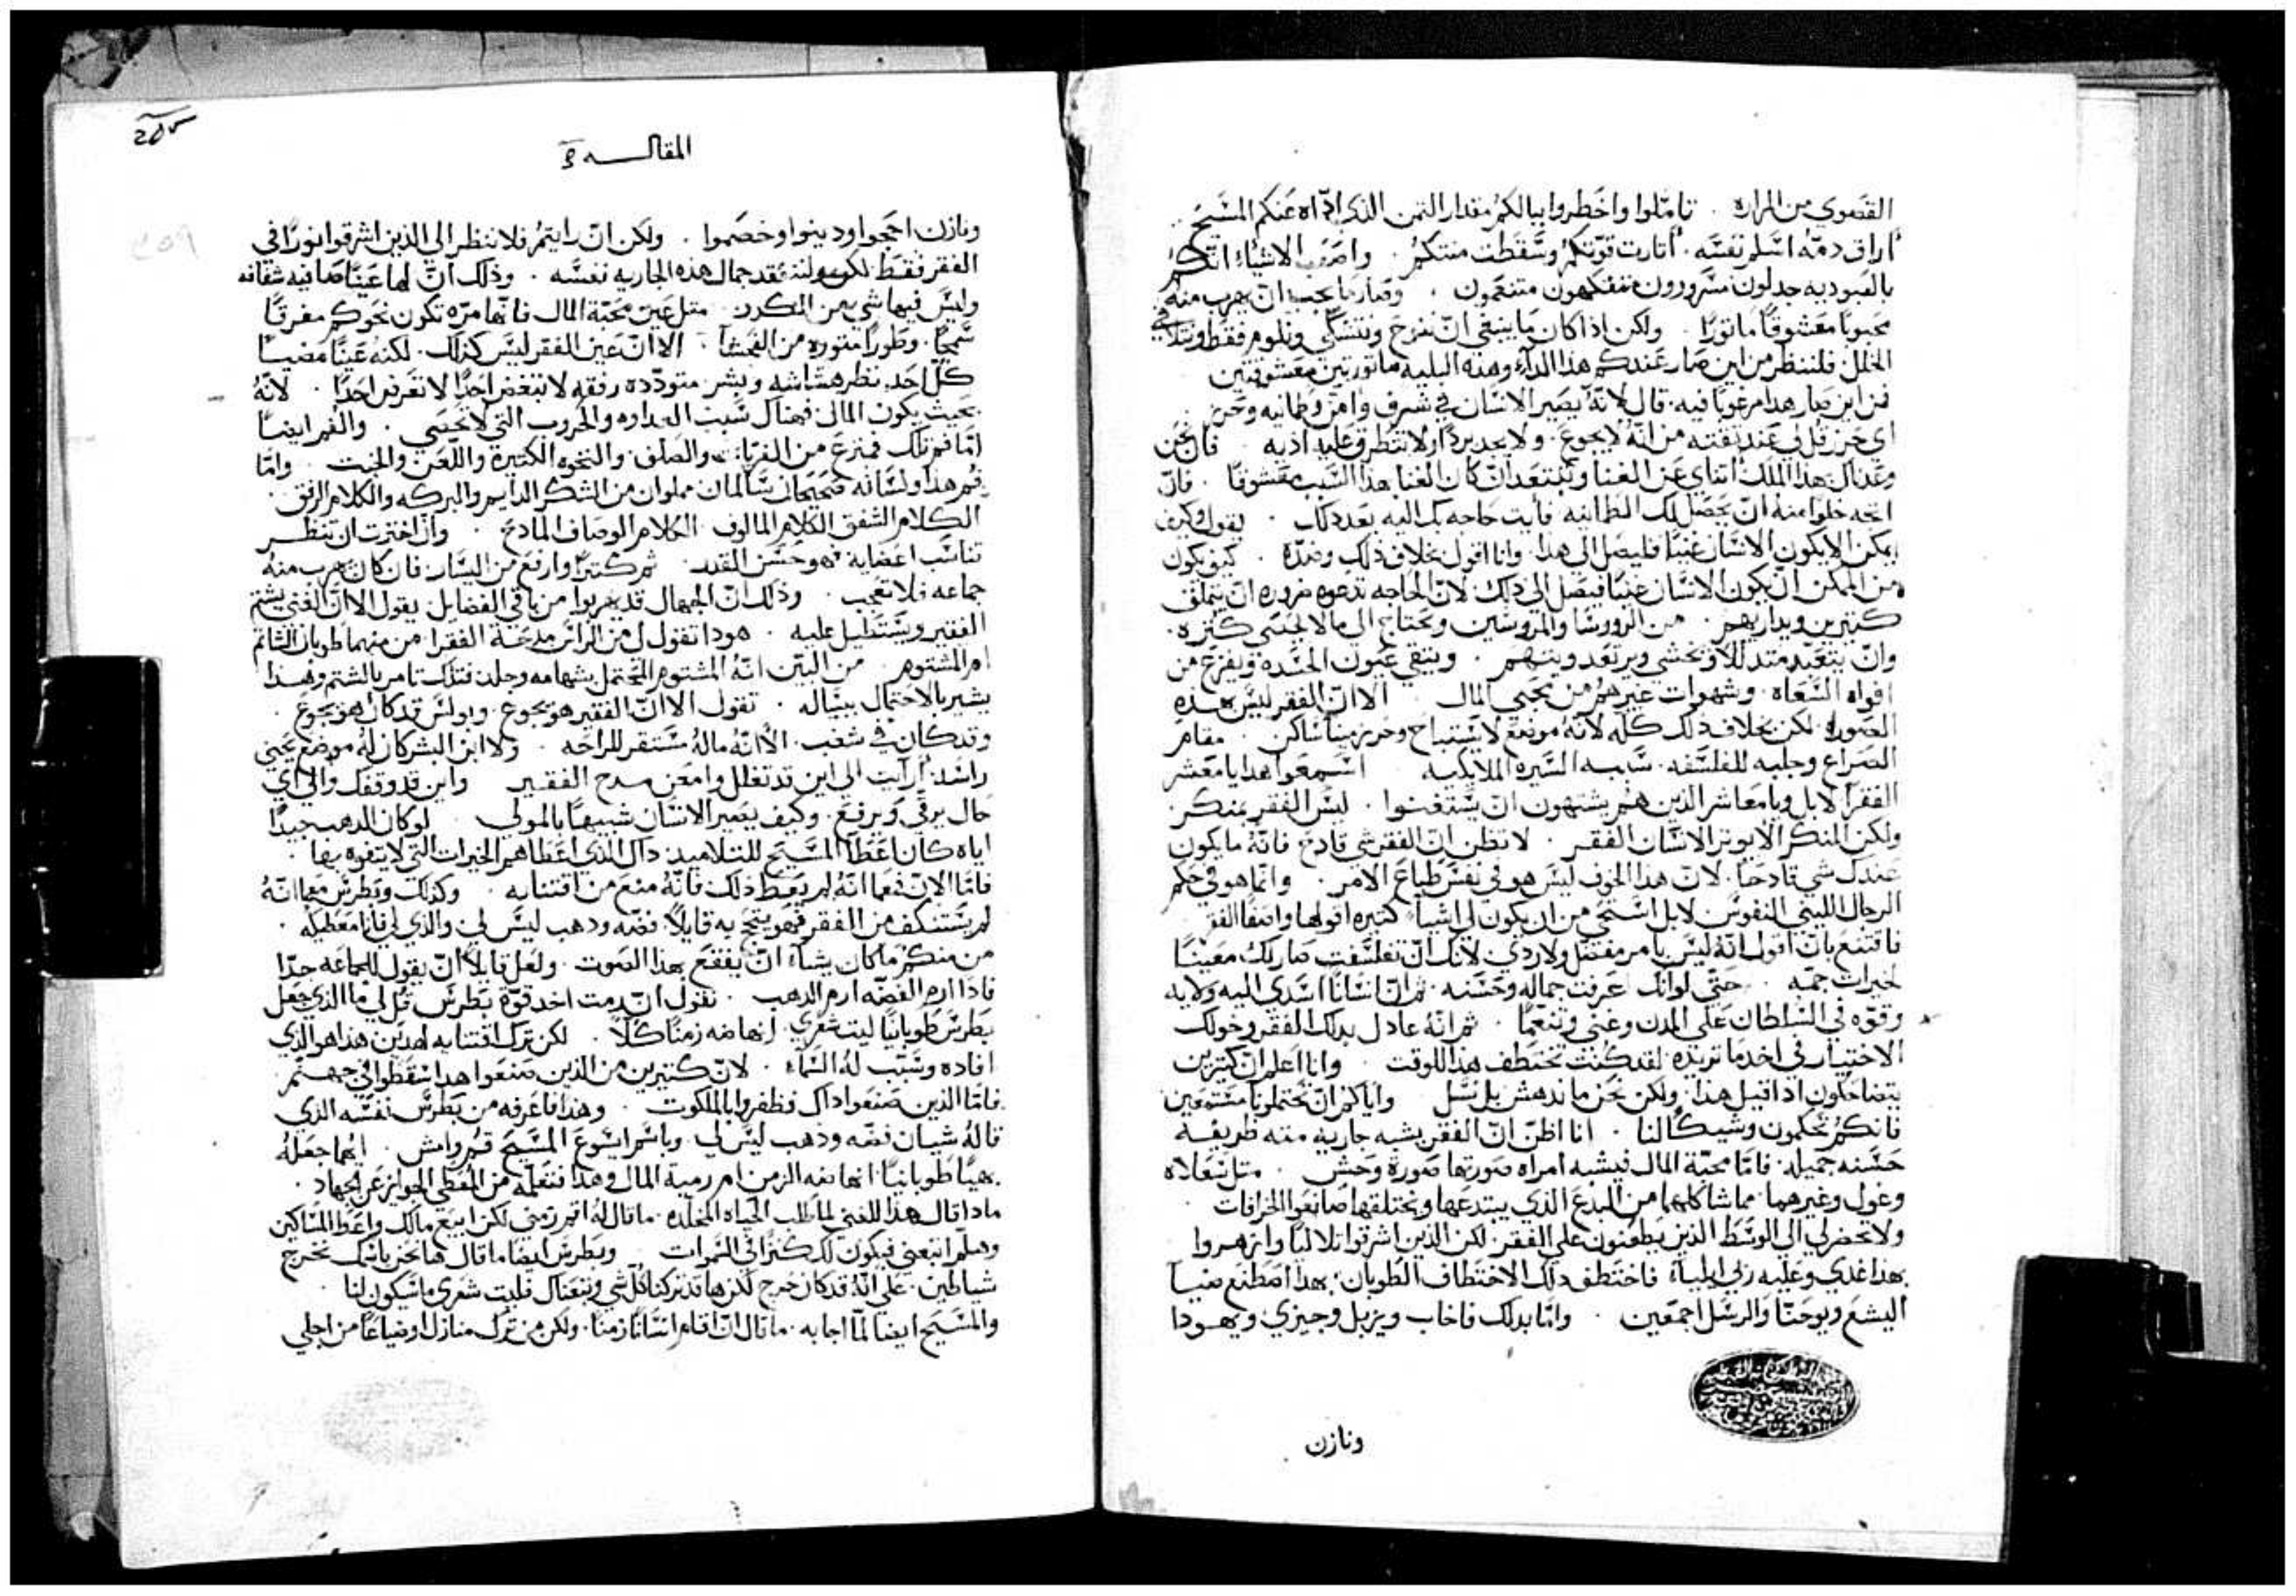 القصوي من المراره . تاملوا واخطروا ببالكم مقدار الثمن الذي ادّاه عنكم المسيح
اراق دمه اسلم نفسه . وسقطت منتكم . الاشياء انكم
بالعبوديه جدلون مسرورون متفكهون متنعمون . وصار ما يجب ان يهرب منه
محبوبا معشوقا ماثورا . ولكن اذا كان ما ينبغي ان ننوح ونتشكي ونلوم فقط
الخلل فلننظر من اين صار عندكم هذا الدآء وهذه البليه ماثورتين معشوقتين
فمن اين صار هذا مرغوبا فيه . قال لانه يصير الانسان في شرف وامن وطمانيه وحرز
اي حرز قل لي عند ثقته من انه لا يجوع . ولا يجد بردا ولا تتطرق عليه اذيه . فان نحن
هذا الملك عن الغنا ان كان الغنا بهذا السبب معشوقا . فان
اتجه خلوا منه ان يحصل لك الطمانيه فايت حاجه بك اليه بعد ذلك . يقول وكيف
يمكن الا يكون الانسان غنيا فليصل الي هذا . وانا اقول بخلاف ذلك وضده . كيف يكون
من الممكن ان يكون الانسان غنيا فيصل الي ذلك . لان الحاجه تدعوه ضروره ان يتملق
كثيرين ويداريهم . من الرووسا والمرووسين ويحتاج الي ما لا يحصي كثره .
وان يتعبد متدللا ويخشي ويرتعد ويتهم . ويتقي عيون الحسده ويفزع من
افواه السعاه . وشهوات غيرهم من محبي المال . الا ان الفقر ليس هذه
الصوره لكن بخلاف ذلك كله لانه موضع لا يستباح وحرز مينا ساكن . مقام
الصراع وجلبه للفلسفه . شبه السيره الملايكيه . اسمعوا هدا يا معشر
الفقرآ لا بل ويا معاشر الذين هم يشتهون ان يستغنوا . ليس الفقر بمنكر
ولكن المنكر الا يوثر الانسان الفقر . لا تظن ان الفقر شي قادح فانه ما يكون
عندك شي قادحا . لان هذا الخوف ليس هو في نفس طباع الامر . وانما هو في حكم
الرجال الليني النفوس لا بل استحي من ان يكون لي اشيآ كثيره اقولها واصفا الفقر
فاقتنع بان اقول انه ليس بامر مفضل ولا ردي لانك ان تفلسفت صار لك معينا
لخيرات جمه . حتي لو انك عرفت جماله وحسنه . ثم ان انسانا اسدي اليه ولايه
وقوه في السلطان علي المدن وغني وتنعما . ثم انه عادل بدلك الفقر وخولك
الاختيار في اخد ما تريده لقد كنت تختطف هذا للوقت . وانا اعلم ان كثيرين
يتضاحكون ادا قيل هذا ولكن نحن ما ندهش بل نسل . واياكم ان تحتملونا مستمعين
فانكم تحكمون وشيكا لنا . انا اظن ان الفقر يشبه جاريه منه ظريفه
حسنه جميله . فاما محبة المال فيشبه امراه صورتها صورة وحش . مثل سعلاه
وغول وغيرهما . مما شاكلهما من البدع الذي يبتدعها ويختلقها صانعوا الخرافات
ولا تحضر لي الي الوسط الذين يطعنون علي الفقر . لكن الذين اشرقوا تلاليا وازهروا
بهذا غدي وعليه ربي ايلياء فاختطف دلك الاختطاف الطوبان . بهذا اصطنع ضيا
اليشع ويوحنا والرسل اجمعين . واما بدلك فاخاب ويزبل وجيزي ويهودا
ونازن
المقاله
ونازن احجوا ودينوا وخصموا . ولكن ان رايتم فلا ننظر الي الذين اشرقوا نورا في
الفقر فقط لكن جمال هذه الجاريه نفسه . وذلك ان لها عينا صافيه شفافه
وليس فيها شي من الكدر . مثل عين محبة المال فانها مره تكون نحوكم مفرقا
سمجا . وطورا من الفحشا . الا ان عين الفقر ليس كذلك . لكنه عينا مضيا
كل احد نظر هشاشه وبشر متودده رفقه لا تبغض احدا لا تعرض احدا . لانه
بحيث يكون المال فهناك سبب العداوه والحروب التي لا تحصي . والفم ايضا
اما فم تلك فمترع من والصلف والنخوه الكثيره واللعن والخبث . واما
فم هذا ولسانه فصحيحان سالمان مملوان من الشكر الدايم والبركه والكلام الرفق .
الكلام الشفق الكلام المالوف . الكلام الوصاف المادح . وان اخترت ان تنظر
تناسب اعضايه وحسن القد . ثم كثيرا وارفع من اليسار . فان كان يهرب منه
جماعه فلا تعجب . وذلك ان الجهال قد هربوا من باقي الفضايل . يقول الا ان الغني يشتم
الفقير ويستطيل عليه . هودا تقول لي من الراس مدحة الفقرا من منهما طوبان الشاتم
ام المشتوم . من البين انه المشتوم المحتمل بشهامه وجلد . فتلك تامر بالشتم وهذا
يشير بالاحتمال ببساله . تقول الا ان الفقير هو يجوع . وبولس قد كان هو يجوع .
وقد كان في شغب . الا انه ماله مستقر للراحه . ولا ابن البشر كان له موضع يحني
راسه . ارايت الي اين قد تغلغل وامعن مدح الفقير . واين قد وقفك والي اي
حال يرقي ويرفع . وكيف يصير الانسان شبيها بالمولي . لو كان الدهب جيدا
اياه كان اعطآ المسيح للتلاميد . دال الذي اعطاهم الخيرات التي لا يتفوه بها .
فاما الان فمعما انه لم يعط ذلك فانه منع من اقتنايه . وكذلك وبطرس معما انه
لم يستنكف من الفقر فهو يتبجح به قايلا . فضه ودهب ليس لي . والذي لي فانا معطيكه .
من منكم ما كان يشآء ان يفقع بهذا الصوت . ولعل قايلا ان يقول للجماعه جدا
فادا ارم الفضه ارم الدهب . نقول ان رمت اخد قوة بطرس قل لي ما الذي جعل
بطرس طوبانيا ليت شعري . انهاضه زمنا كلا . لكن ترك اقتنايه لهدين هذا هو الذي
افاده وسبب له السماء . لان كثيرين من الذين صنعوا هدا سقطوا في جهنم
فاما الذين صنعوا داك فظفروا بالملكوت . وهذا فاعرفه من بطرس نفسه الذي
قاله شيان فضه وذهب ليس لي . وباسم ايسوع المسيح قم وامش . ايهما جعله
بهيا طوبانيا . انهاضه الزمن ام رمية المال وهذا فتعلمه من المعطي الجوايز عن الجهاد .
مادا قال هذا للغني لما طلب الحياه المخلده . ما قال له اقم زمني لكن ابيع مالك واعط المساكين
وهلم اتبعني فيكون لك كنزا في السموات . وبطرس ايضا ما قال ها نحن باسمك نخرج
شياطين . علي انه قد كان خرج لكن ها قد تركنا كل شي وتبعناك فليت شعري ما سيكون لنا .
والمسيح ايضا لما اجابه . ما قال ان اقام انسانا زمنا . ولكن من ترك منازل او ضياعا من اجلي